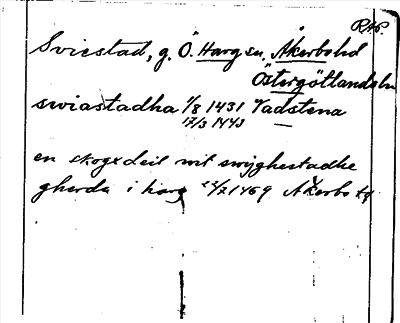 RAP.
Sviestad, g. Ö. Harg sn. Åkerbo hd
Östergötlands ln
swiastadha 1/8 1431 Vadstena
17/3 1443
en skogx deil wit swyghestadhe
gherde i harg 22/7 1469 Åkerbo